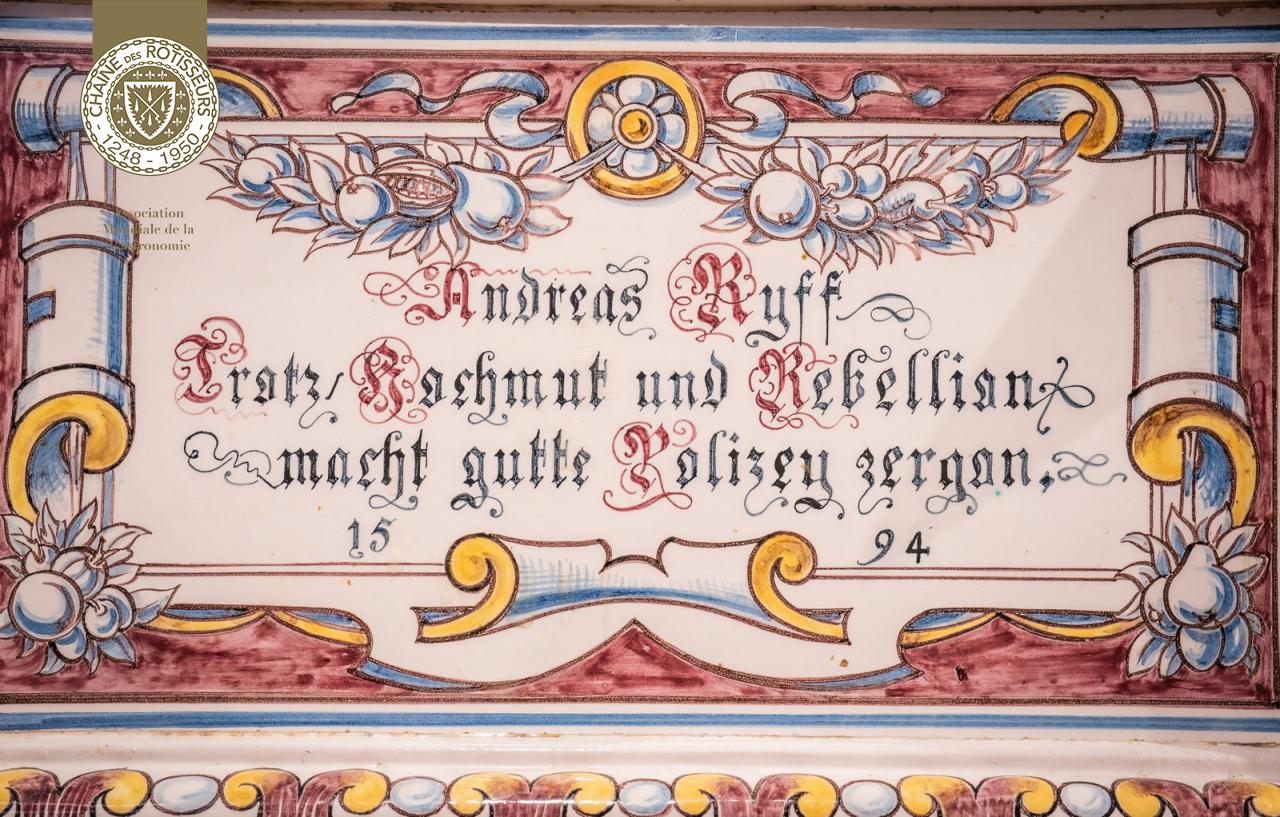 CHAINE DES ROTISSEURS
1248 - 1950
Association
Mondiale de la
Gastronomie
Andreas Ryff
Trotz, Hochmut und Rebellion
macht gutte Polizey zergon.
15 94